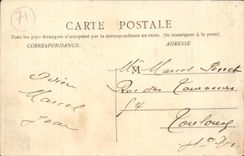 71
CARTE POSTALE
Tous les pays étrangers n'acceptent pas la correspondance au recto. (Se renseigner à la poste).
CORRESPONDANCE.
ADRESSE
Marcel
Jean
Mr Marcel
Rue des
54
Toulouse